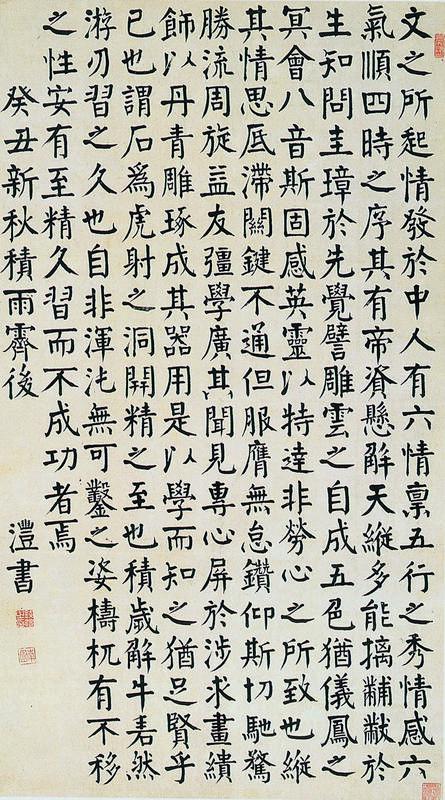 文之所起情發於中人有六情禀五行之秀情感六
氣順四時之序其有帝資懸解天縱多能摛黼黻於
生知問圭璋於先覺譬雕雲之自成五色猶儀鳳之
冥會八音斯固感英靈以特達非勞心之所致也縱
其情思底滯關鍵不通但服膺無怠鑽仰斯切馳騖
勝流周旋益友彊學廣其聞見專心屏於涉求畫繢
飾以丹青雕琢成其器用是以學而知之猶足賢乎
已也謂石爲虎射之洞開精之至也積歲解牛砉然
游刃習之久也自非渾沌無可鑿之姿檮杌有不移
之性安有至精久習而不成功者焉
癸丑新秋積雨霽後 澧書